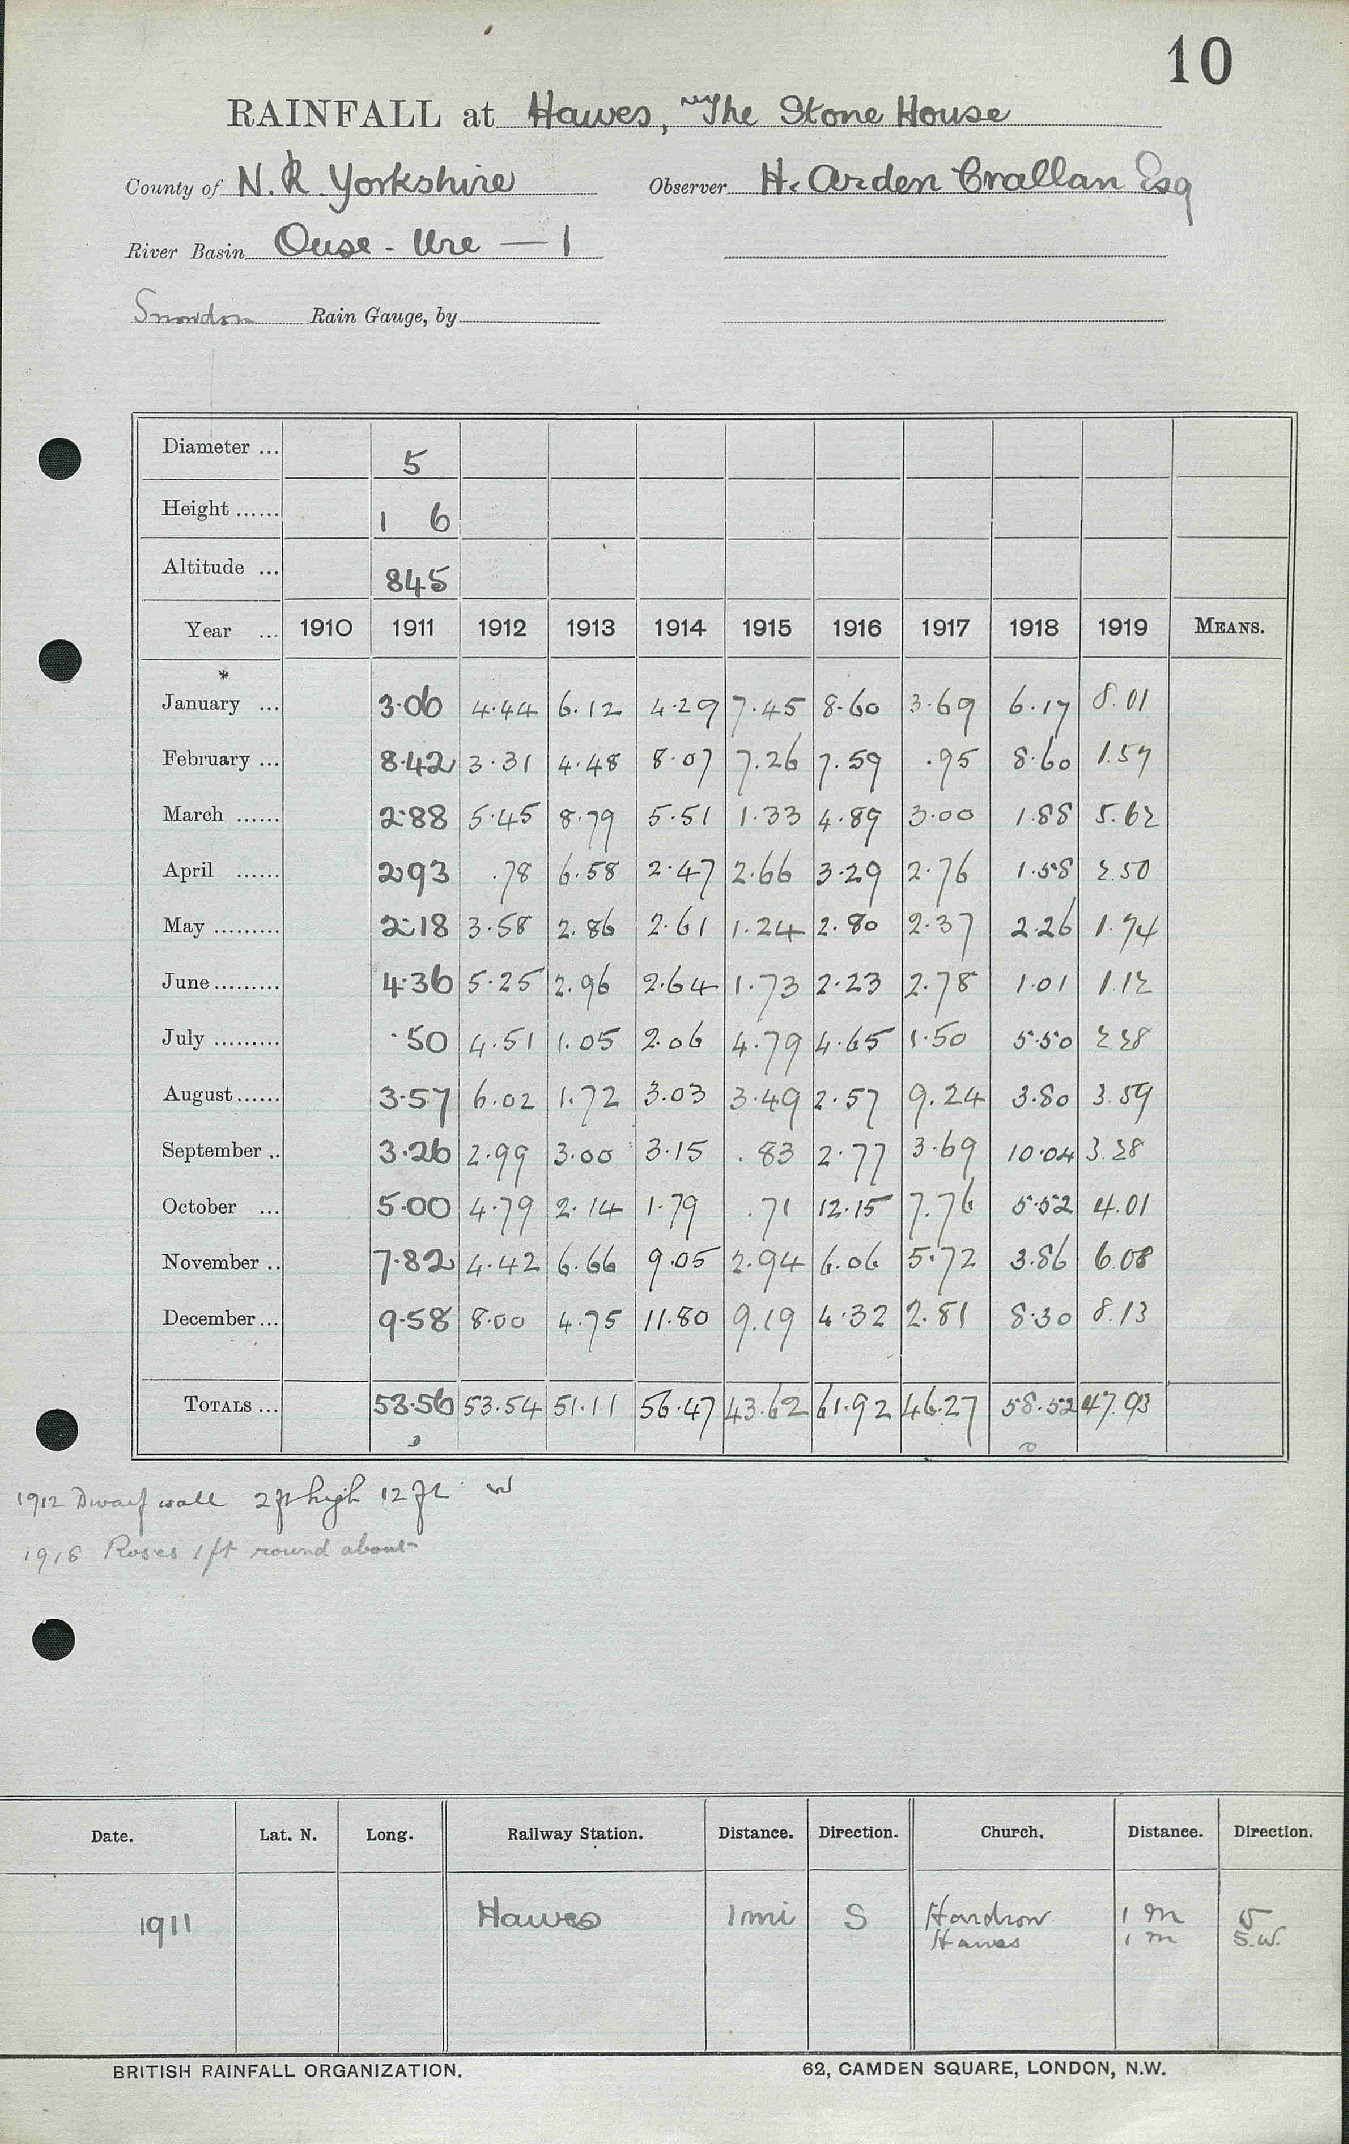 10
RAINFALL at Hawes, The Stone House
County of N.R. Yorkshire Observer H. Arden Crallan Esq
River Basin Ouse - Ure — 1
Snowdon Rain Gauge, by
Diameter ... 5
Height ...... 1 6
Altitude ... 845
Year ... 1910 1911 1912 1913 1914 1915 1916 1917 1918 1919 MEANS.
*
January ... 3.06 4.44 6.12 4.29 7.45 8.60 3.69 6.17 8.01
February ... 8.42 3.31 4.48 8.07 7.26 7.59 .95 8.60 1.57
March ...... 2.88 5.45 8.79 5.51 1.33 4.89 3.00 1.88 5.62
April ...... 2.93 .78 6.58 2.47 2.66 3.29 2.76 1.58 2.50
May ......... 2.18 3.58 2.86 2.61 1.24 2.80 2.37 2.26 1.74
June ......... 4.36 5.25 2.96 2.64 1.73 2.23 2.78 1.01 1.12
July ......... .50 4.51 1.05 2.06 4.79 4.65 1.50 5.50 2.28
August ...... 3.57 6.02 1.72 3.03 3.49 2.57 9.24 3.80 3.59
September .. 3.26 2.99 3.00 3.15 .83 2.77 3.69 10.04 3.28
October ... 5.00 4.79 2.14 1.79 .71 12.15 7.76 5.52 4.01
November .. 7.82 4.42 6.66 9.05 2.94 6.06 5.72 3.86 6.08
December ... 9.58 8.00 4.75 11.80 9.19 4.32 2.81 8.30 8.13
TOTALS ... 53.56 53.54 51.11 56.47 43.62 61.92 46.27 58.52 47.93
1912 Dwarf wall 2ft high 12 ft W
1918 Roses 1ft round about
Date. Lat. N. Long. Railway Station. Distance. Direction. Church. Distance. Direction.
1911 Hawes 1 mi S Hardrow 1 m
Hawes 1 m S.W.
BRITISH RAINFALL ORGANIZATION. 62, CAMDEN SQUARE, LONDON, N.W.